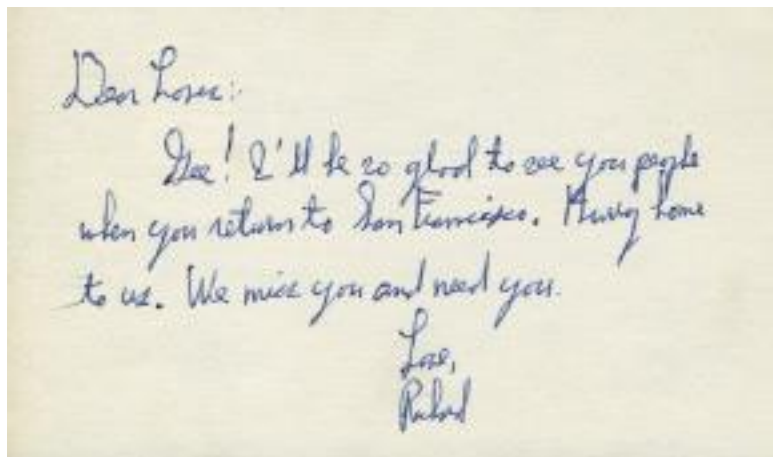 Dear
Gee! I'll be so glad to see you people
when you return to San Francisco. Hurry home
to us. We miss you and need you.
Love,
Richard